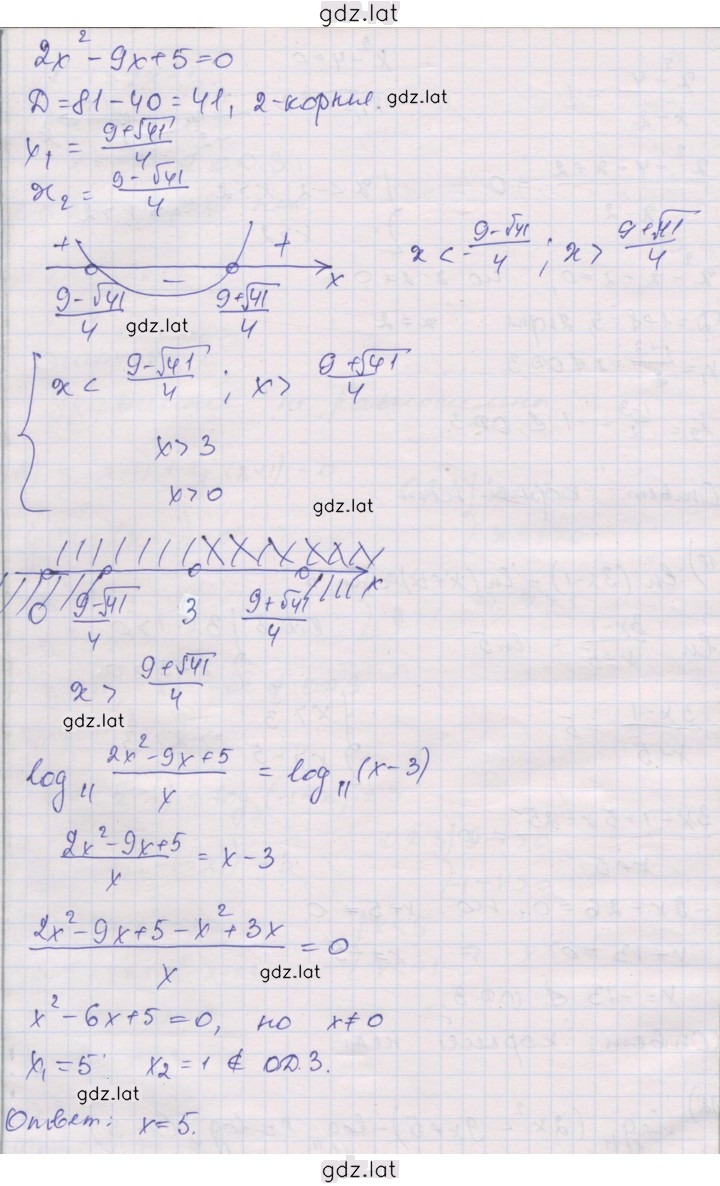 gdz.lat
2x² - 9x + 5 = 0
D = 81 - 40 = 41, 2-корня. gdz.lat
x₁ = (9+√41)/4
x₂ = (9-√41)/4
+ - + x
(9-√41)/4 (9+√41)/4
x < (9-√41)/4 ; x > (9+√41)/4
gdz.lat
{ x < (9-√41)/4 ; x > (9+√41)/4
x > 3
x > 0
gdz.lat
0 (9-√41)/4 3 (9+√41)/4 x
x > (9+√41)/4
gdz.lat
log₁₁ (2x² - 9x + 5)/x = log₁₁ (x - 3)
(2x² - 9x + 5)/x = x - 3
(2x² - 9x + 5 - x² + 3x)/x = 0
gdz.lat
x² - 6x + 5 = 0, но x ≠ 0
x₁ = 5 x₂ = 1 ∉ ОДЗ.
gdz.lat
Ответ: x = 5.
gdz.lat